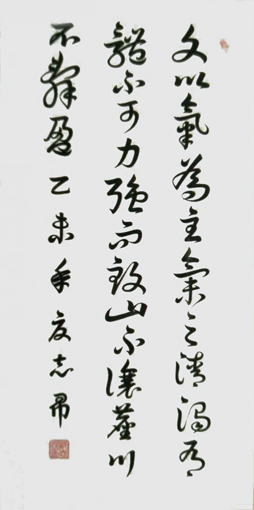 文以氣為主氣之清濁有
體不可力強而致山不讓塵川
不辭盈乙未年夏志昂